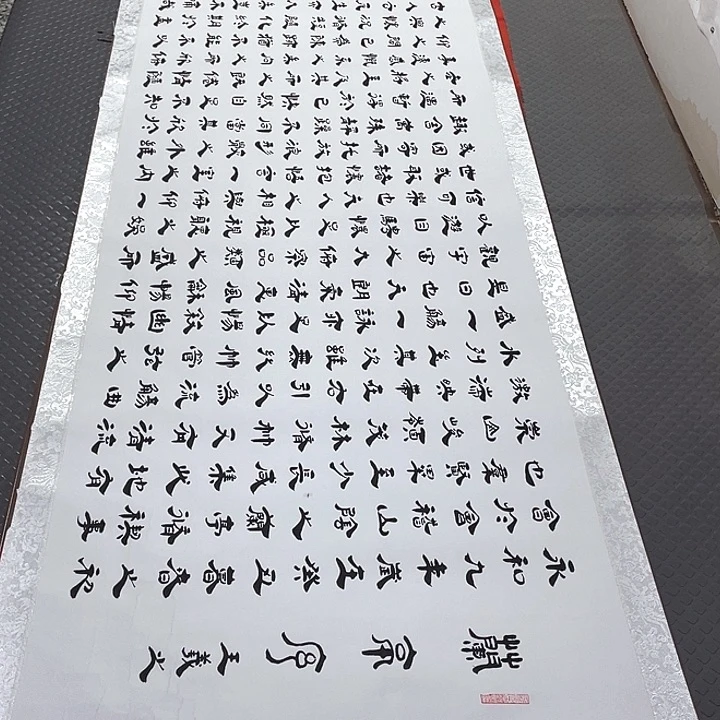 蘭亭序 王羲之
永和九年歲在癸丑暮春之初
會於會稽山陰之蘭亭脩禊事
也羣賢畢至少長咸集此地有
崇山峻領茂林脩竹又有清流
激湍暎帶左右引以為流觴曲
水列坐其次雖無絲竹管弦之
盛一觴一詠亦足以暢敘幽情
是日也天朗氣清惠風和暢仰
觀宇宙之大俯察品類之盛所
以遊目騁懷足以極視聽之娛
信可樂也夫人之相與俯仰一
世或取諸懷抱悟言一室之內
或因寄所託放浪形骸之外雖
趣舍萬殊靜躁不同當其欣於
所遇暫得於己快然自足不知
老之將至及其所之既惓情隨
事遷感慨係之矣向之所欣俛
仰之間已為陳迹猶不能不以
之興懷況脩短隨化終期於盡